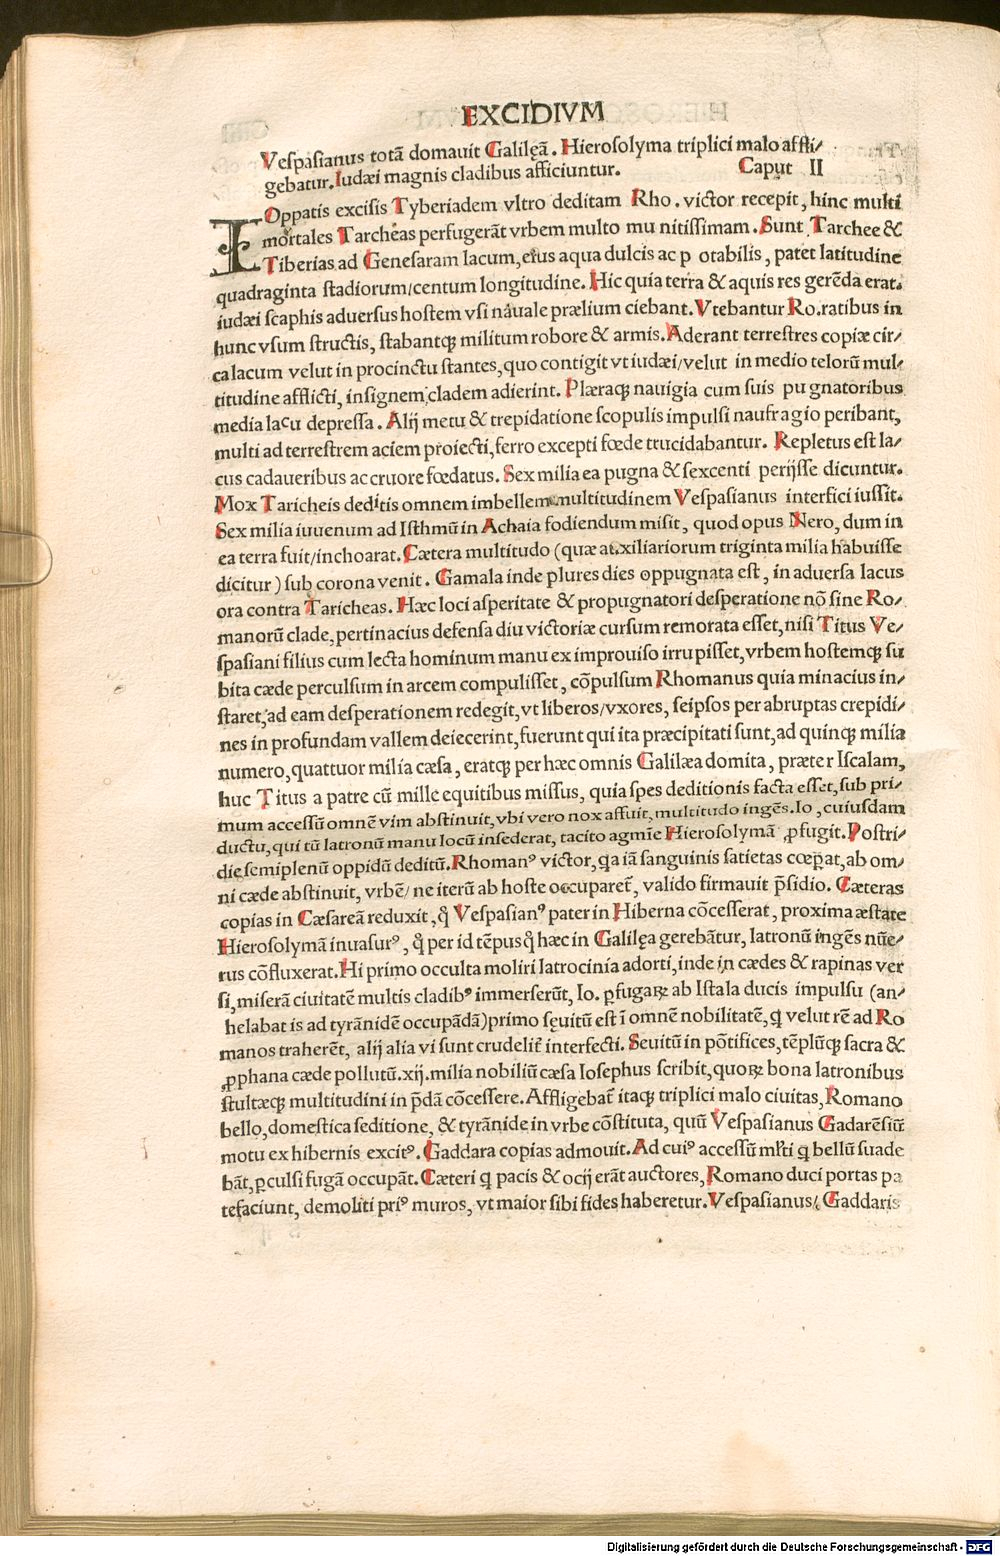 EXCIDIVM
Vespasianus totã domauit Galilęã. Hierosolyma triplici malo affli⸗
gebatur. Iudæi magnis cladibus afficiuntur. Caput II
IOppatis excisis Tyberiadem vltro deditam Rho. victor recepit, hinc multi
mortales Tarcheas perfugerãt vrbem multo mu nitissimam. Sunt Tarchee &
Tiberias ad Genesaram lacum, eius aqua dulcis ac p otabilis, patet latitudine
quadraginta stadiorum/centum longitudine. Hic quia terra & aquis res gerẽda erat.
iudæi scaphis aduersus hostem vsi nauale prælium ciebant. Vtebantur Ro. ratibus in
hunc vsum structis, stabantqꝫ militum robore & armis. Aderant terrestres copiæ cir⸗
ca lacum velut in procinctu stantes, quo contigit vt iudæi/velut in medio telorũ mul⸗
titudine afflicti, insignem cladem adierint. Plæraqꝫ nauigia cum suis pu gnatoribus
media lacu depressa. Alij metu & trepidatione scopulis impulsi naufragio peribant,
multi ad terrestrem aciem proiecti, ferro excepti fœde trucidabantur. Repletus est la⸗
cus cadaueribus ac cruore fœdatus. Sex milia ea pugna & sexcenti perijsse dicuntur.
Mox Taricheis deditis omnem imbellem multitudinem Vespasianus interfici iussit.
Sex milia iuuenum ad Isthmũ in Achaia fodiendum misit, quod opus Nero, dum in
ea terra fuit/inchoarat. Cætera multitudo (quæ auxiliariorum triginta milia habuisse
dicitur) sub corona venit. Gamala inde plures dies oppugnata est, in aduersa lacus
ora contra Taricheas. Hæc loci asperitate & propugnatori desperatione nõ sine Ro⸗
manorũ clade, pertinacius defensa diu victoriæ cursum remorata esset, nisi Titus Ve⸗
spasiani filius cum lecta hominum manu ex improuiso irrupisset, vrbem hostemqꝫ su
bita cæde perculsum in arcem compulisset, cõpulsum Rhomanus quia minacius in⸗
staret, ad eam desperationem redegit, vt liberos/vxores, seipsos per abruptas crepidi⸗
nes in profundam vallem deiecerint, fuerunt qui ita præcipitati sunt, ad quinqꝫ milia
numero, quattuor milia cæsa, eratqꝫ per hæc omnis Galilæa domita, præter Iscalam,
huc Titus a patre cũ mille equitibus missus, quia spes deditionis facta esset, sub pri⸗
mum accessũ omnẽ vim abstinuit, vbi vero nox affuit, multitudo ingẽs. Io, cuiusdam
ductu, qui tũ latronũ manu locũ insederat, tacito agmĩe Hierosolymã ꝓfugit. Postri⸗
die semiplenũ oppidũ deditũ. Rhomanꝰ victor, qa iã sanguinis satietas cœpat, ab om⸗
ni cæde abstinuit, vrbẽ/ ne iterũ ab hoste occuparet̃, valido firmauit p̃sidio. Cæteras
copias in Cæsareã reduxit, q̊ Vespasianꝰ pater in Hiberna cõcesserat, proxima æstate
Hierosolymã inuasurꝰ, q̊ per id tẽpus q̊ hæc in Galilęa gerebãtur, latronũ ingẽs nũe⸗
rus cõfluxerat. Hi primo occulta moliri latrocinia adorti, inde in cædes & rapinas ver
si, miserã ciuitatẽ multis cladibꝰ immerserũt, Io. ꝓfugaꝝ ab Istala ducis impulsu (an⸗
helabat is ad tyrãnidẽ occupãdã) primo sęuitũ est ĩ omnẽ nobilitatẽ, q velut rẽ ad Ro
manos traherẽt, alij alia vi sunt crudelit̃ interfecti. Seuitũ in põtifices, tẽplũqꝫ sacra &
ꝓphana cæde pollutũ. xij. milia nobiliũ cæsa Iosephus scribit, quoꝝ bona latronibus
stultæqꝫ multitudini in p̃dã cõcessere. Affligebat̃ itaqꝫ triplici malo ciuitas, Romano
bello, domestica seditione, & tyrãnide in vrbe cõstituta, quũ Vespasianus Gadarẽsiũ
motu ex hibernis excitꝰ. Gaddara copias admouit. Ad cuiꝰ accessũ mlti q bellũ suade
bãt, ꝑculsi fugã occupãt. Cæteri q pacis & ocij erãt auctores, Romano duci portas pa
tefaciunt, demoliti priꝰ muros, vt maior sibi fides haberetur. Vespasianus/ Gaddaris
Digitalisierung gefördert durch die Deutsche Forschungsgemeinschaft - DFG